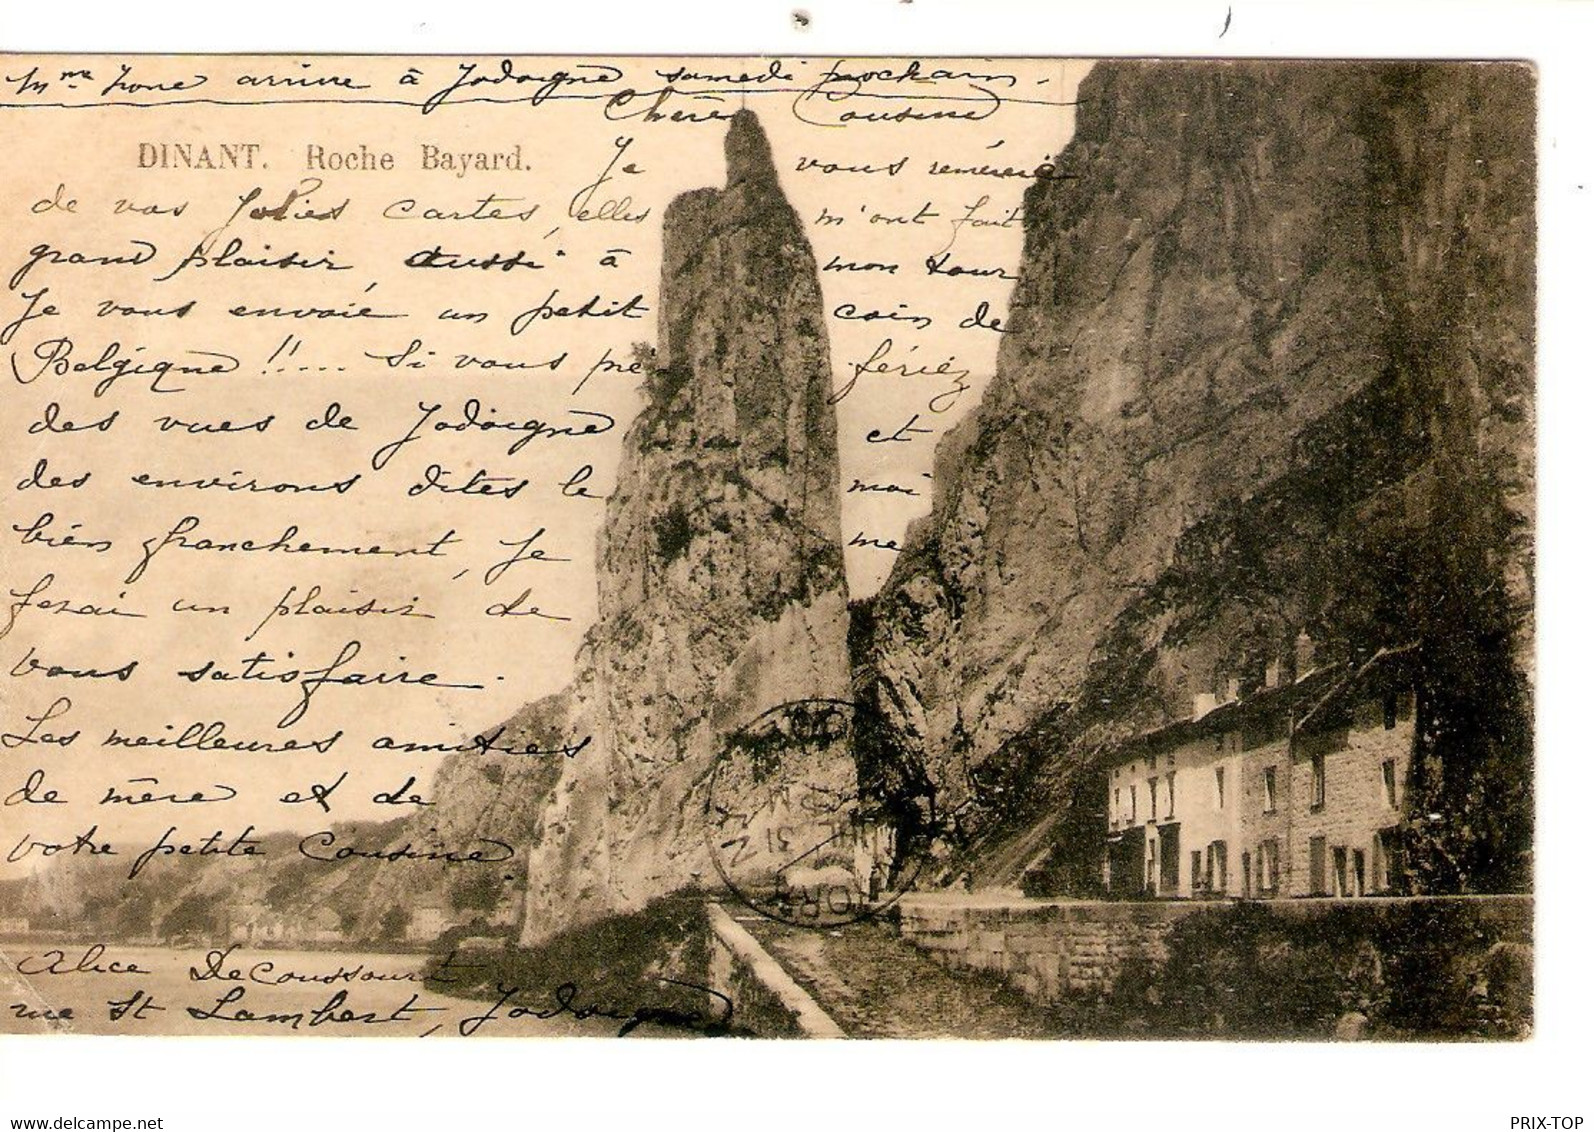 Mme Irène arrive à Jodoigne samedi prochain.
Chère Cousine
DINANT. Roche Bayard.
Je vous remércie
de vos jolies cartes, elles m'ont fait
grand plaisir, aussi à mon tour
Je vous envoié un petit coin de
Belgique !!.... Si vous pré-fériéz
des vues de Jodoigne et
des environs dites le moi
bien franchement, Je me
ferai un plaisir de
vous satisfaire.
Les meilleures amitiés
de mère et de
votre petite Cousine.
Alice Decoussaurt
rue St Lambert, Jodoigne
JUIL 31
www.delcampe.net
PRIX-TOP